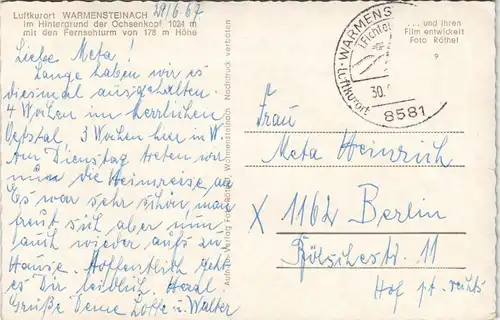 Luftkurort WARMENSTEINACH
im Hintergrund der Ochsenkopf 1024 m
mit den Fernsehturm von 178 m Höhe
29/6 67.
Liebe Meta!
Lange haben wir es
diesmal ausgehalten.
4 Wochen im herrlichen
Oetztal 3 Wochen hier in W.
Am Dienstag treten wir
nun die Heimreise an
Es war sehr schön man
freut sich aber nun
auch wieder aufs zu
Hause. Hoffentlich geht
es Dir leiblich. Herzl.
Grüße Deine Lotte u. Walter
Nachdruck verboten
WARMENS
(Fichtel
30.
Luftkurort
8581
. . . und Ihren
Film entwickelt
Foto Räthel
9
Frau
Meta Heinrich
X 1162 Berlin
Bölschestr. 11
Hof pt. rechts